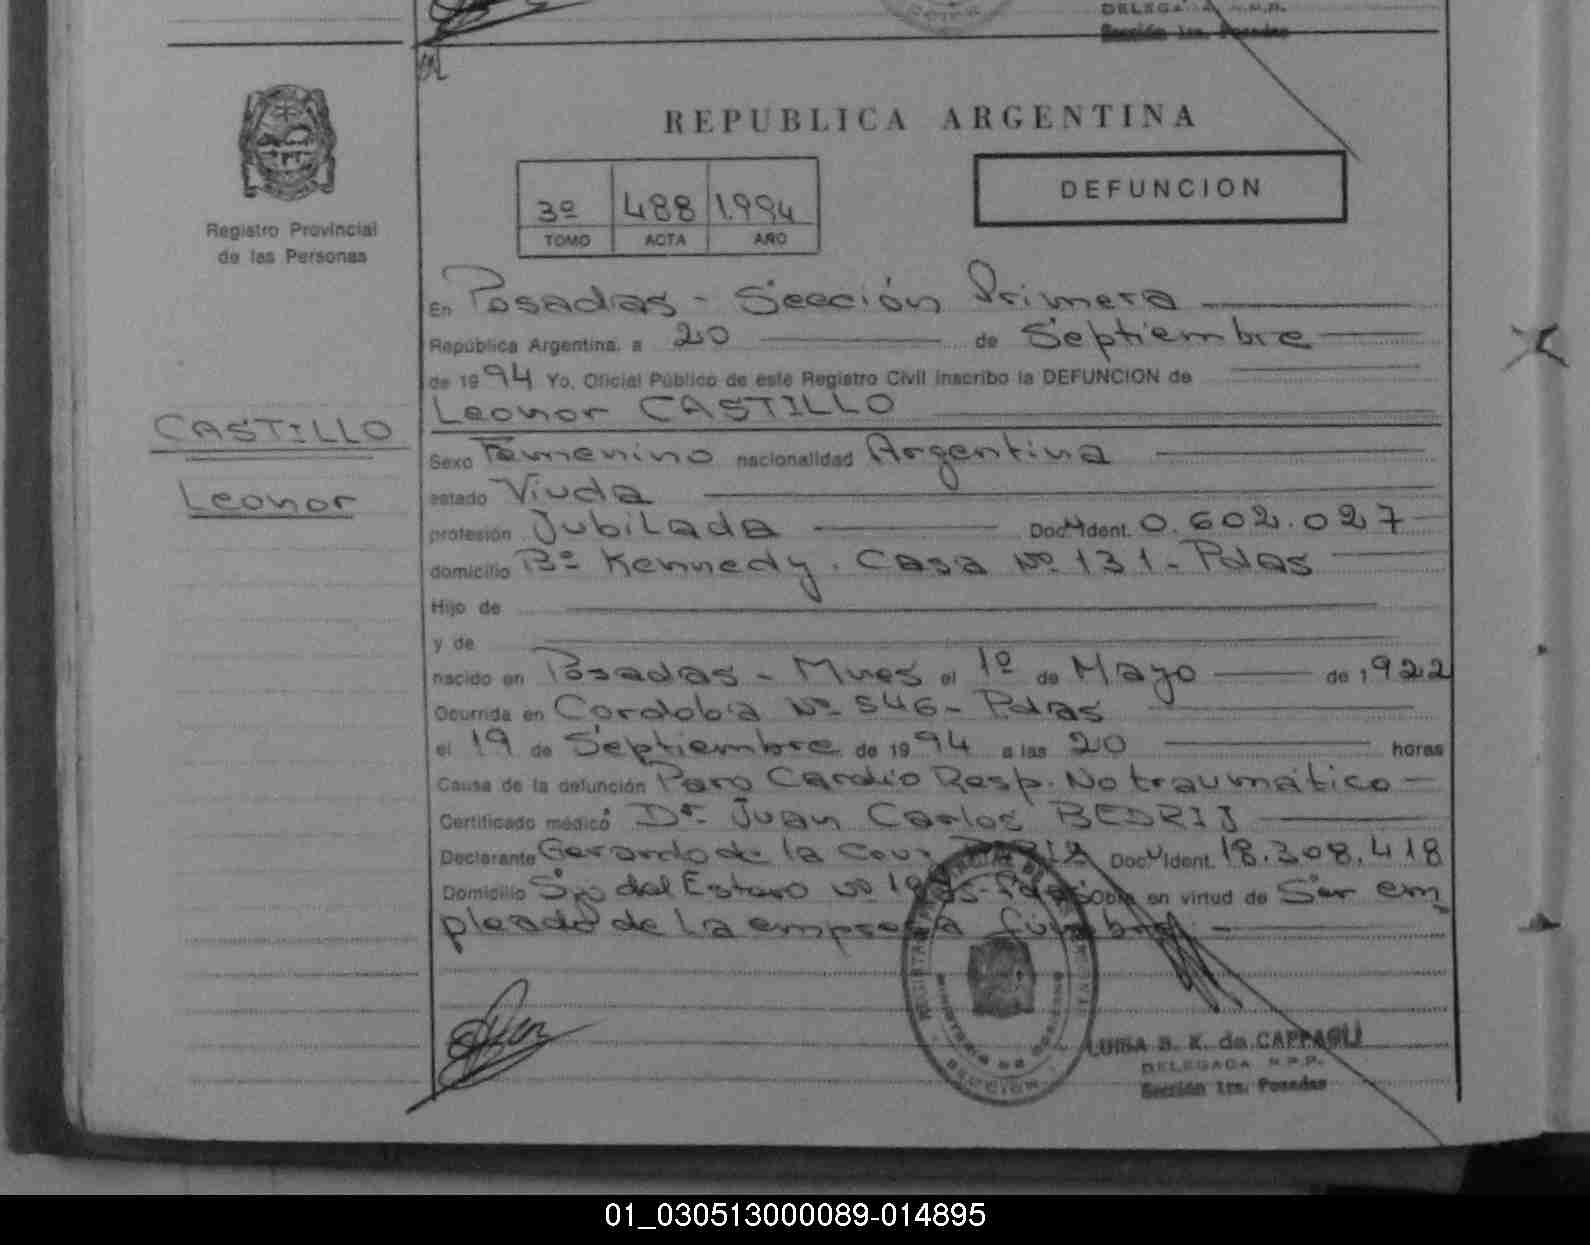 DELEGADA R.P.P.
Sección 1ra. Posadas
REPUBLICA ARGENTINA
DEFUNCION
3º 488 1.994
TOMO ACTA AÑO
Registro Provincial
de las Personas
En Posadas - Sección Primera
República Argentina, a 20 de Septiembre
de 1994 Yo, Oficial Público de este Registro Civil inscribo la DEFUNCION de
Leonor CASTILLO
CASTILLO
Leonor
Sexo Femenino nacionalidad Argentina
estado Viuda
profesión Jubilada Docu Ident. 0.602.027
domicilio Bº Kennedy. Casa Nº 131 - Pdas
Hijo de
y de
nacido en Posadas - Mnes el 1º de Mayo de 1922
Ocurrida en Cordoba Nº 546 - Pdas
el 19 de Septiembre de 1994 a las 20 horas
Causa de la defunción Paro Cardio Resp. No traumático
Certificado médico Dr. Juan Carlos BEDRIJ
Declarante Gerardo de la Cruz Docu Ident. 18.308.418
Domicilio Sgo del Estero Nº Pdas Obra en virtud de Ser em
pleado de la empresa fúnebre
LUISA B. K. de CAPPAGLI
DELEGADA R.P.P.
Sección 1ra. Posadas
01_030513000089-014895